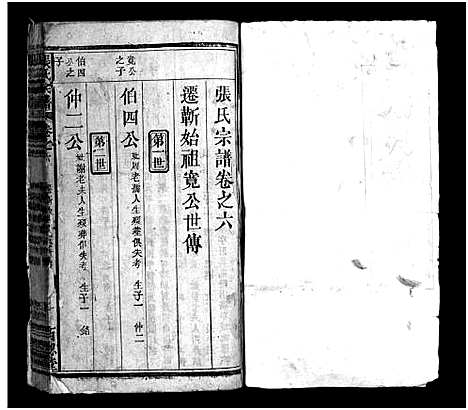 張氏宗譜卷之六
遷蘄始祖寛公世傳
第一世
寛公之子
伯四公 妣周老孺人生歿塟俱失考 生子一 仲二
第二世
伯四公之子
仲二公 妣謝老太人生歿塟俱失考 生子一